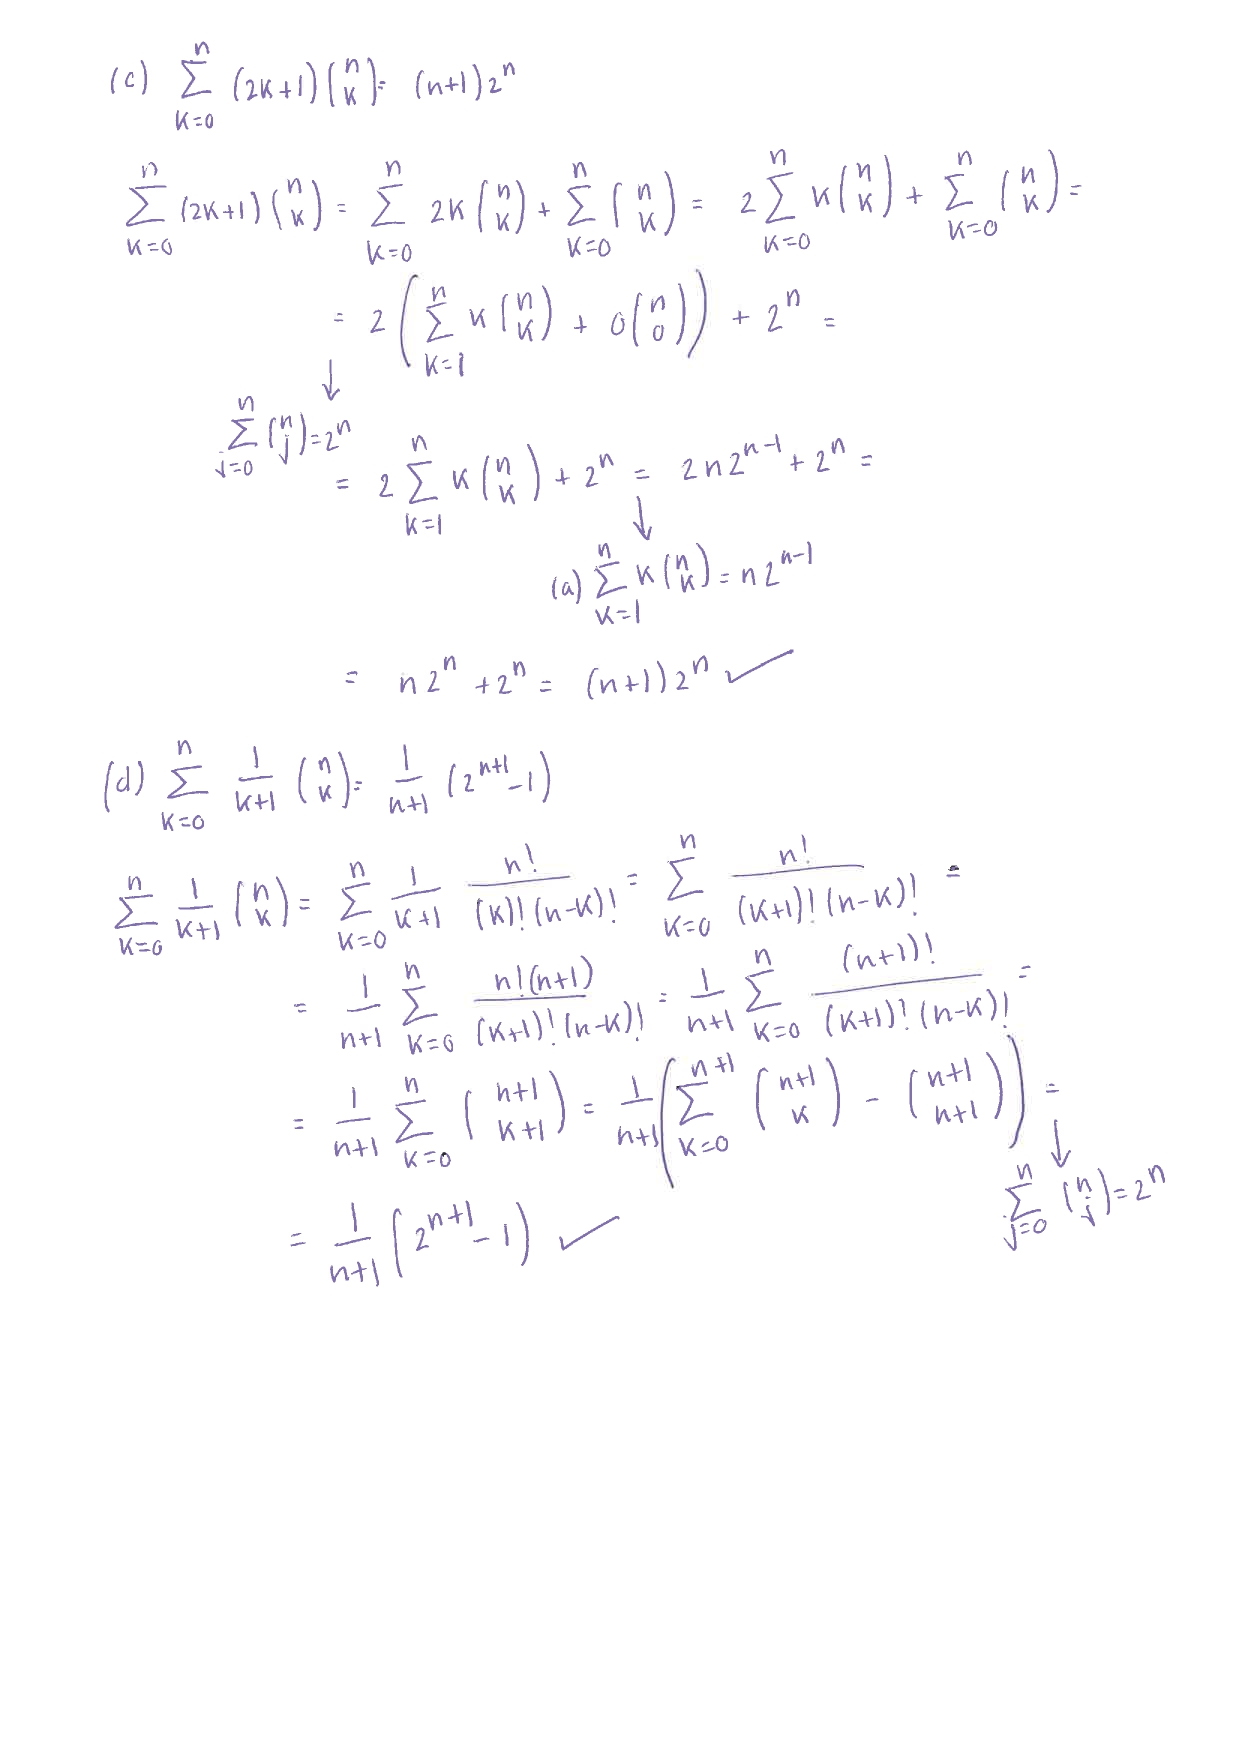 (c) \sum_{k=0}^{n} (2k+1) \binom{n}{k} = (n+1) 2^n
\sum_{k=0}^{n} (2k+1) \binom{n}{k} = \sum_{k=0}^{n} 2k \binom{n}{k} + \sum_{k=0}^{n} \binom{n}{k} = 2 \sum_{k=0}^{n} k \binom{n}{k} + \sum_{k=0}^{n} \binom{n}{k} =
= 2 \left( \sum_{k=1}^{n} k \binom{n}{k} + 0 \binom{n}{0} \right) + 2^n =
↓
\sum_{j=0}^{n} \binom{n}{j} = 2^n
= 2 \sum_{k=1}^{n} k \binom{n}{k} + 2^n = 2 n 2^{n-1} + 2^n =
↓
(a) \sum_{k=1}^{n} k \binom{n}{k} = n 2^{n-1}
= n 2^n + 2^n = (n+1) 2^n ✓
(d) \sum_{k=0}^{n} \frac{1}{k+1} \binom{n}{k} = \frac{1}{n+1} (2^{n+1} - 1)
\sum_{k=0}^{n} \frac{1}{k+1} \binom{n}{k} = \sum_{k=0}^{n} \frac{1}{k+1} \frac{n!}{(k)! (n-k)!} = \sum_{k=0}^{n} \frac{n!}{(k+1)! (n-k)!} =
= \frac{1}{n+1} \sum_{k=0}^{n} \frac{n! (n+1)}{(k+1)! (n-k)!} = \frac{1}{n+1} \sum_{k=0}^{n} \frac{(n+1)!}{(k+1)! (n-k)!} =
= \frac{1}{n+1} \sum_{k=0}^{n} \binom{n+1}{k+1} = \frac{1}{n+1} \left( \sum_{k=0}^{n+1} \binom{n+1}{k} - \binom{n+1}{n+1} \right) =
↓
\sum_{j=0}^{n} \binom{n}{j} = 2^n
= \frac{1}{n+1} \left( 2^{n+1} - 1 \right) ✓